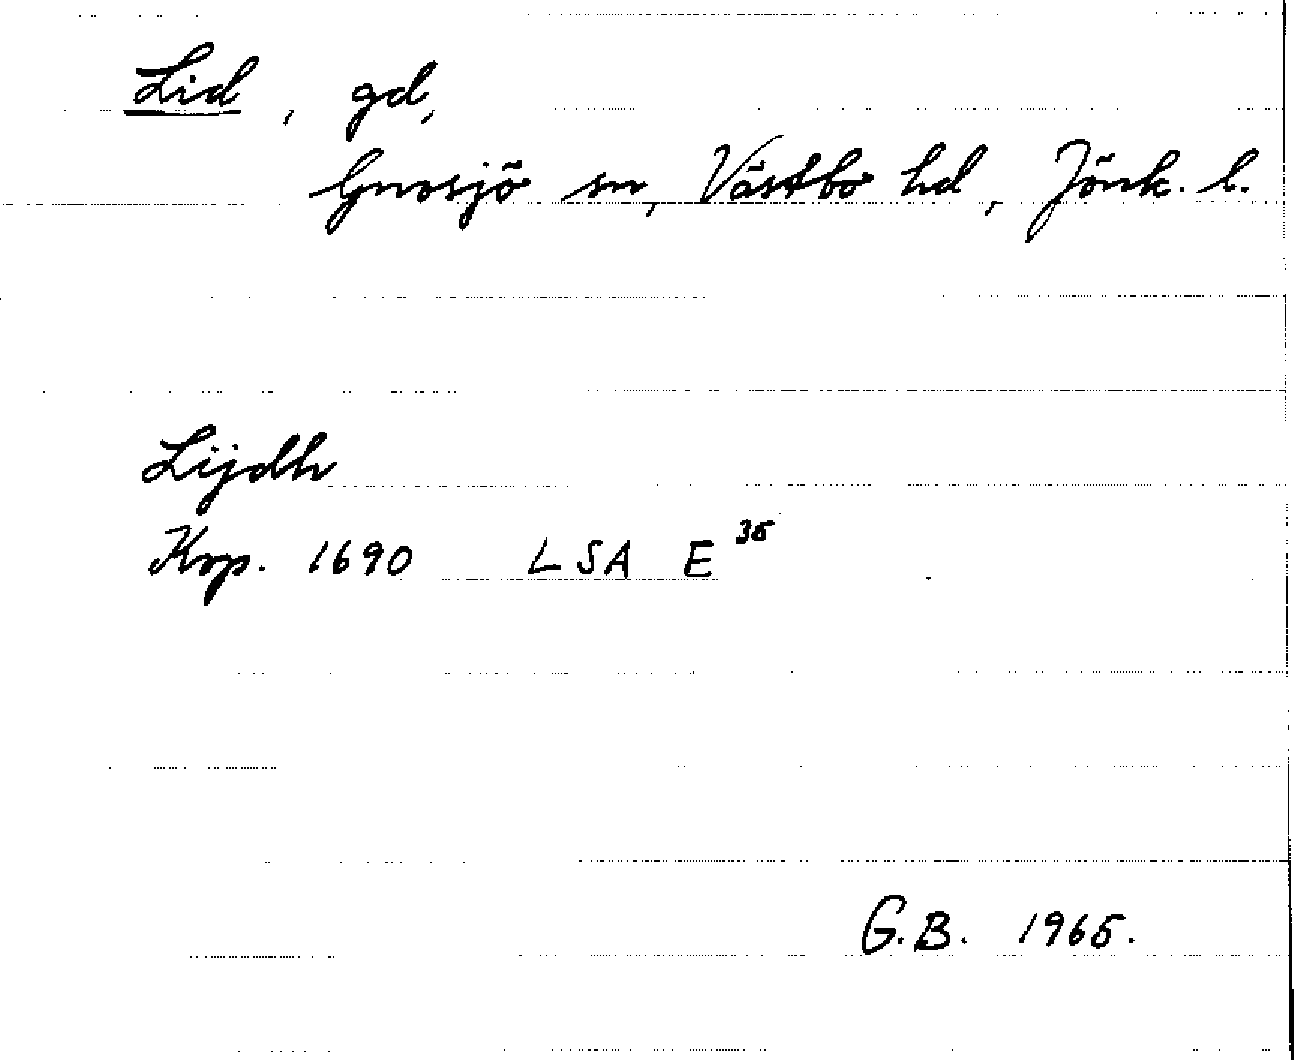 Lid, gd,
Gnosjö sn, Västbo hd, Jönk. l.
Lijdh
Kop. 1690 LSA E 35
G.B. 1965.